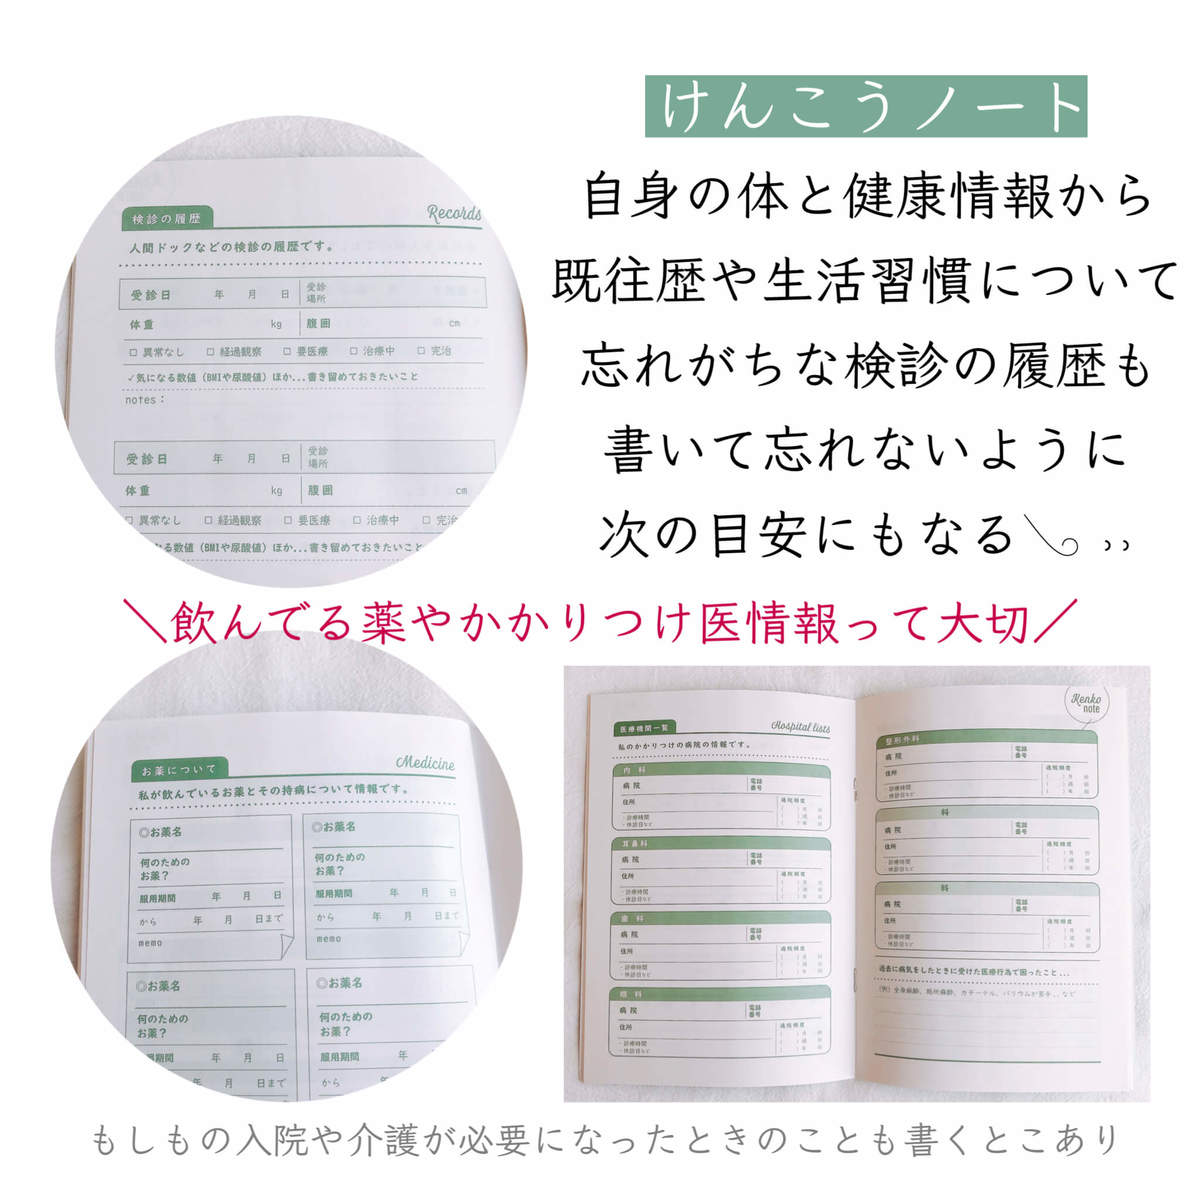 けんこうノート
自身の体と健康情報から
既往歴や生活習慣について
忘れがちな検診の履歴も
書いて忘れないように
次の目安にもなる
＼飲んでる薬やかかりつけ医情報って大切／
検診の履歴
Records
人間ドックなどの検診の履歴です。
受診日 年 月 日 受診場所
体重 kg 腹囲 cm
□異常なし □経過観察 □要医療 □治療中 □完治
✓気になる数値（BMIや尿酸値）ほか...書き留めておきたいこと
notes：
受診日 年 月 日 受診場所
体重 kg 腹囲 cm
□異常なし □経過観察 □要医療 □治療中 □完治
なる数値（BMIや尿酸値）ほか...書き留めておきたいこと
お薬について
Medicine
私が飲んでいるお薬とその持病について情報です。
◎お薬名
何のための
お薬？
服用期間 年 月 日
から 年 月 日まで
memo
◎お薬名
何のための
お薬？
服用期間 年 月 日
から 年 月 日まで
memo
◎お薬名
何のための
お薬？
服用期間 年 月 日
年 月 日まで
◎お薬名
何のための
お薬？
服用期間 年
から 年
医療機関一覧
Hospital lists
私のかかりつけの病院の情報です。
内科
病院 電話番号
住所 通院頻度
・診療時間
・休診日など
耳鼻科
病院 電話番号
住所 通院頻度
・診療時間
・休診日など
歯科
病院 電話番号
住所 通院頻度
・診療時間
・休診日など
眼科
病院 電話番号
住所 通院頻度
・診療時間
・休診日など
Kenko
note
整形外科
病院 電話番号
住所 通院頻度
・診療時間
・休診日など
科
病院 電話番号
住所 通院頻度
・診療時間
・休診日など
科
病院 電話番号
住所 通院頻度
・診療時間
・休診日など
過去に病気をしたときに受けた医療行為で困ったこと...
（例）全身麻酔、局所麻酔、カテーテル、バリウムが苦手...など
もしもの入院や介護が必要になったときのことも書くとこあり